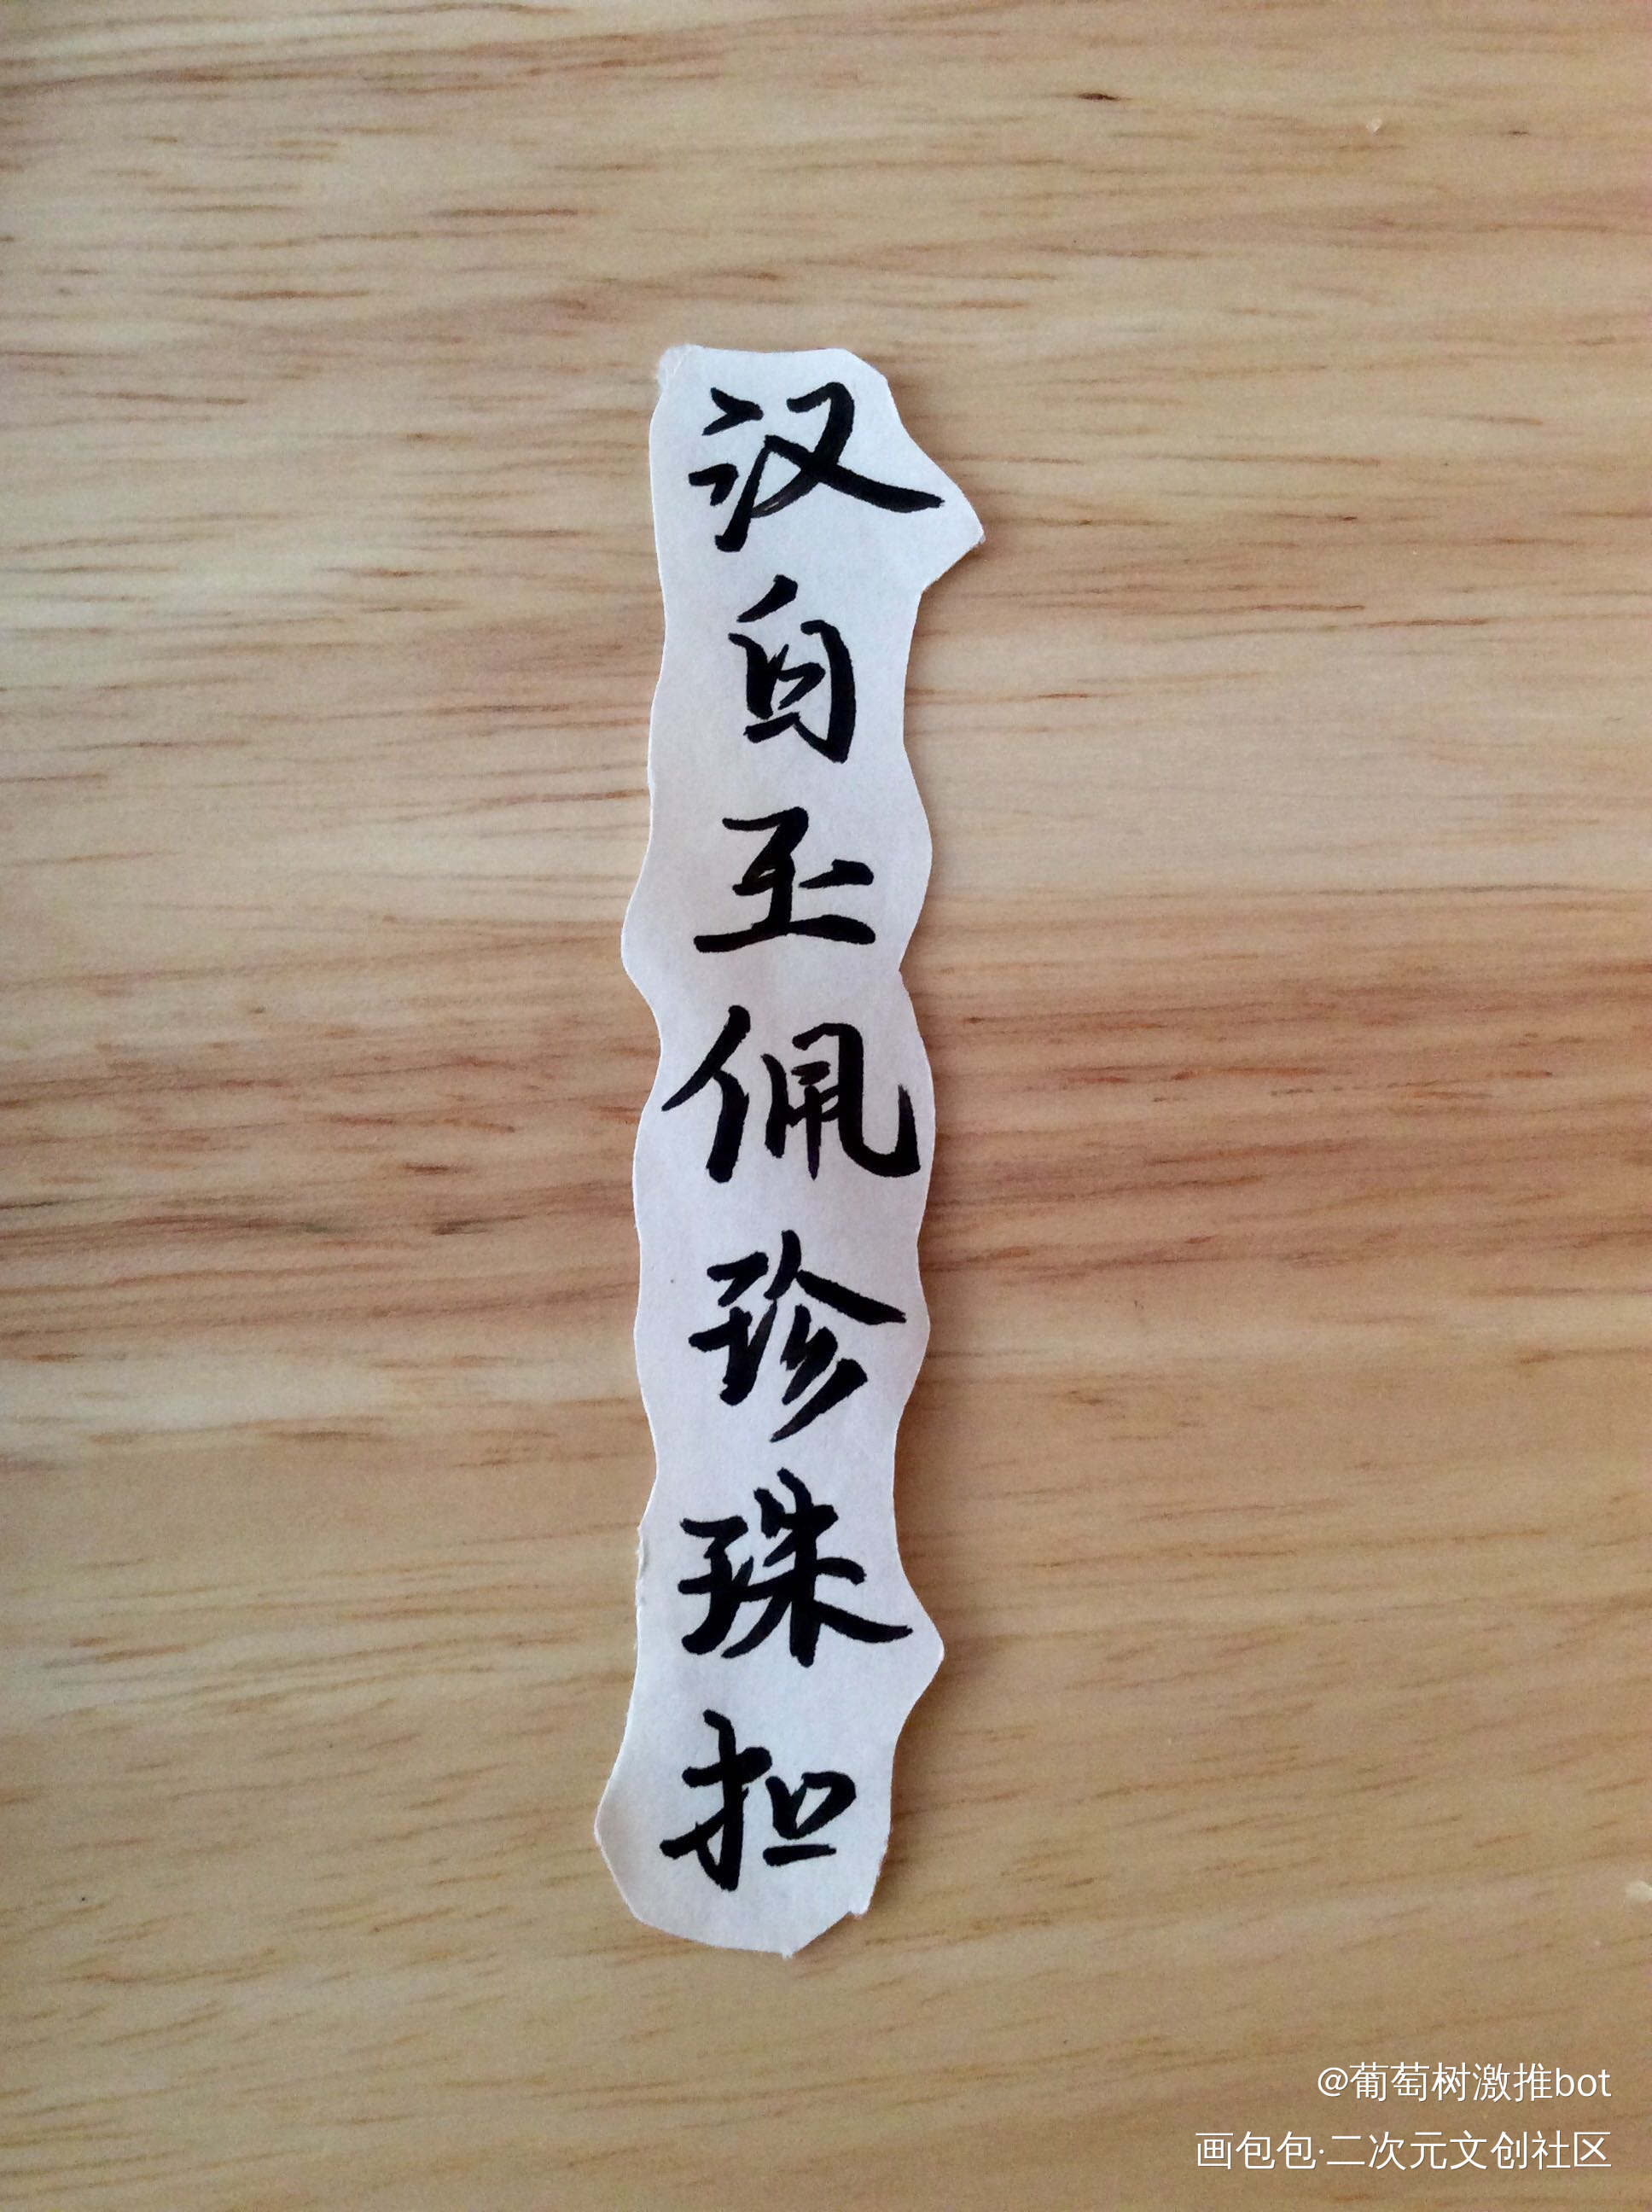 汉白玉佩珍珠扣
@葡萄树激推bot
画包包·二次元文创社区